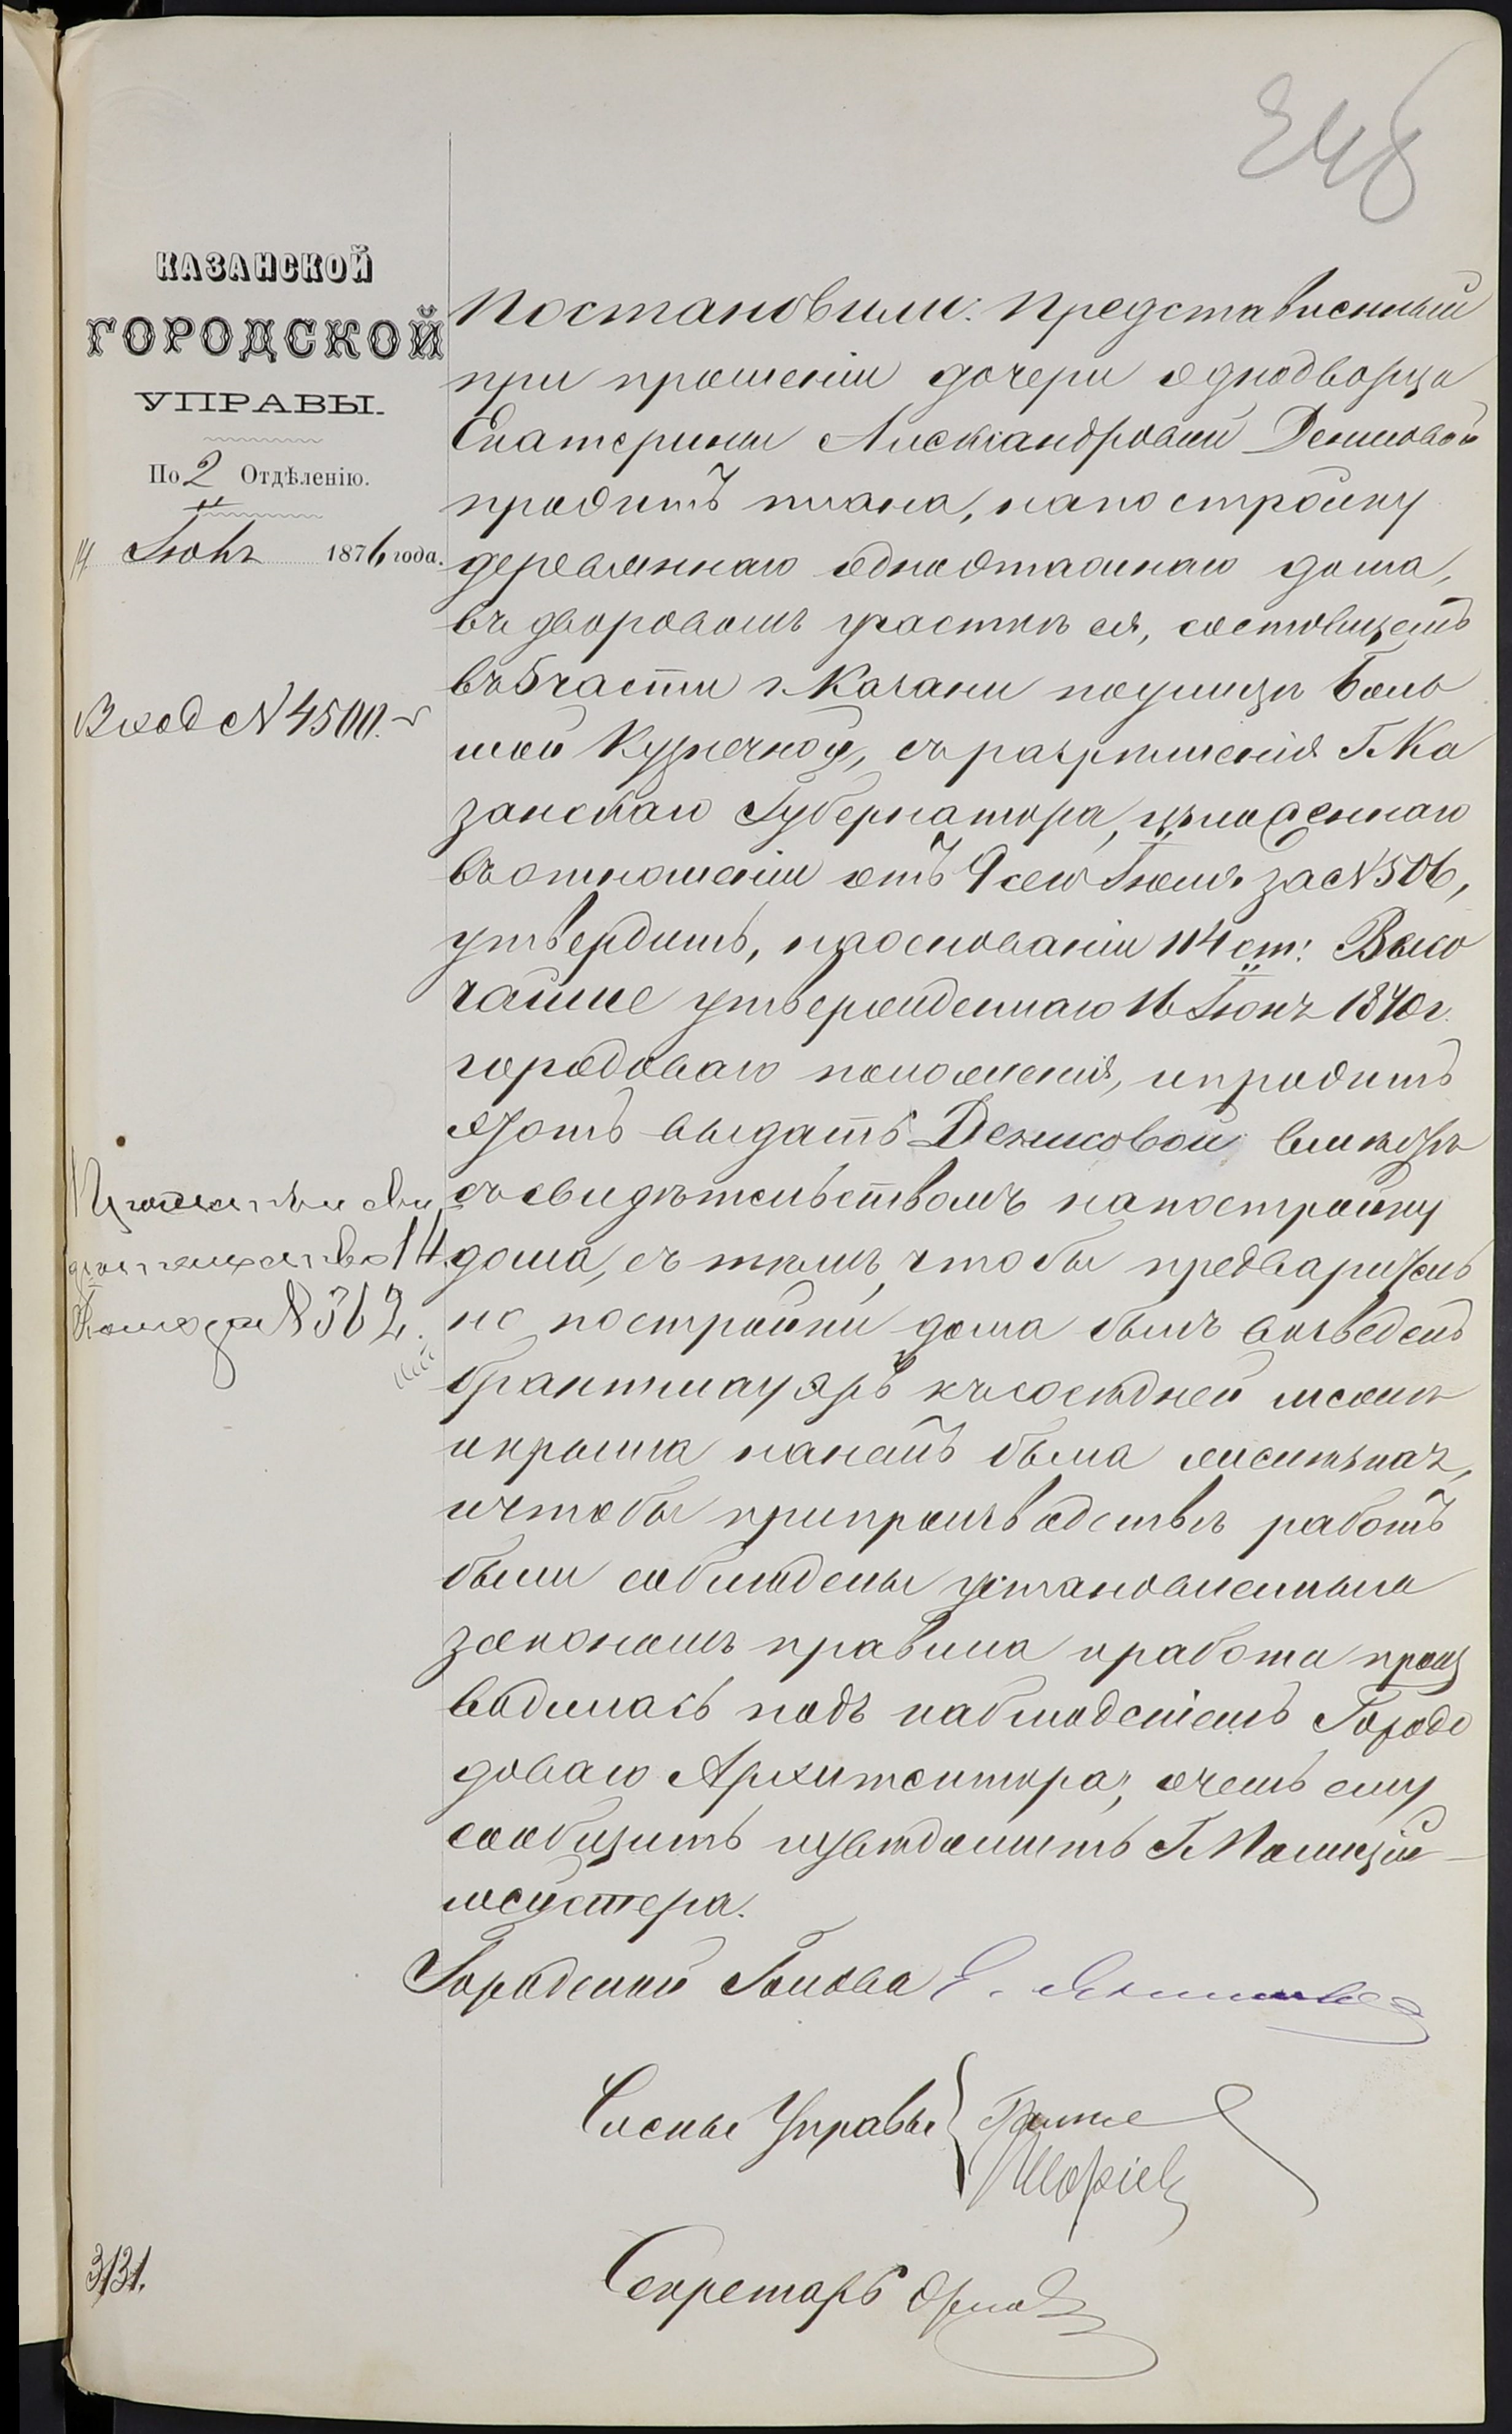 246
КАЗАНСКОЙ
ГОРОДСКОЙ
УПРАВЫ.
По 2 Отдѣленію.
14 Іюля 1876 года.
Вход № 4500.
свидѣтельство 14
Іюля за № 362.
3131.
Постановили: Представленный
при прошеніи дочери однодворца
Екатерины Александровой Денисовой
проэктъ плана, на постройку
деревяннаго одноэтажнаго дома,
въ дворовомъ участкѣ ея, состоящемъ
въ 5 части г. Казани по улицѣ Боль
шой Кузнечной, съ разрѣшенія Г. Ка
занскаго Губернатора, изложеннаго
въ отношеніи отъ 9 сего Іюля за № 506,
утвердить, на основаніи 114 ст: Высо
чайше утвержденнаго 16 Іюня 1870 г.
городоваго положенія, и проэктъ
этотъ выдать Денисовой вмѣстѣ
съ свидѣтельствомъ на постройку
дома, съ тѣмъ, чтобы предваритель
но постройки дома былъ возведенъ
брантмауэръ къ сосѣдней межѣ
и крыша на немъ была желѣзная,
и чтобы при производствѣ работъ
были соблюдены установленныя
закономъ правила и работа произ
водилась подъ наблюденіемъ Горо
доваго Архитектора, о чемъ ему
сообщить и увѣдомить Г. Полиціи
мейстера.
Городской Голова Е.
Члены Управы
Секретарь Орлов